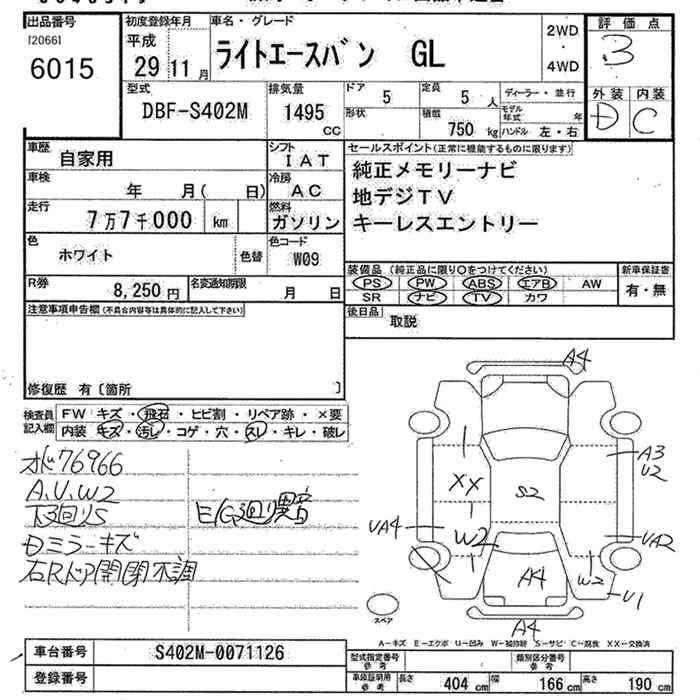 出品番号
[2066]
6015
初度登録年月
平成
29 11月
車名・グレード
ライトエースバン GL
2WD
・
4WD
評価点
3
外装 内装
D C
型式
DBF-S402M
排気量
1495
CC
ドア
5
定員
5人
ディーラー・並行
形状
積載
750kg
モデル年式 年
ハンドル 左・右
車歴
自家用
シフト
IAT
セールスポイント(正常に機能するものに限ります)
純正メモリーナビ
地デジTV
キーレスエントリー
車検
年 月( 日)
冷房
AC
走行
7万7千000 km
燃料
ガソリン
色
ホワイト
色替
色コード
W09
R券
8,250円
名変通知期限
月 日
装備品(純正品に限り○をつけてください)
PS PW ABS エアB AW
SR ナビ TV カワ
新車保証書
有・無
後日品
取説
注意事項申告欄(不具合内容等は具体的に記入して下さい)
修復歴 有〔箇所 〕
検査員記入欄
FW キズ・飛石・ヒビ割・リペア跡・×要
内装 キズ・汚レ・コゲ・穴・スレ・キレ・破レ
メ76966
A、U、W2
下廻りS
E/G廻り異音
Dミラーキズ
右Rドア開閉不調
A4
A3
U2
XX
S2
UA4
W2
UA2
A4
W2
U1
A4
スペア
A-キズ E-エクボ U-凹み W-補修跡 S-サビ C-腐食 XX-交換済
車台番号
S402M-0071126
登録番号
型式指定番号
参考
類別区分番号
参考
車庫証明用
参考
長さ 404cm 幅 166cm 高さ 190cm